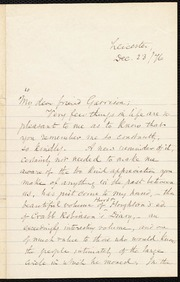 Leicester,
Dec 23/76
My dear friend Garrison,
Very few things in life are so
pleasant to me as to know that
you remember me so constantly,
so kindly. A new reminder of it,
certainly not needed to make me
aware of the too kind appreciation you
make of anything in the past between
us, has just come to my hand, the
beautiful volume of
of Crabb Robinson's Diary, an
exceedingly interesting volume, and one
of much value to those who would know
the people intimately, of the large
circle in which he moved. In the